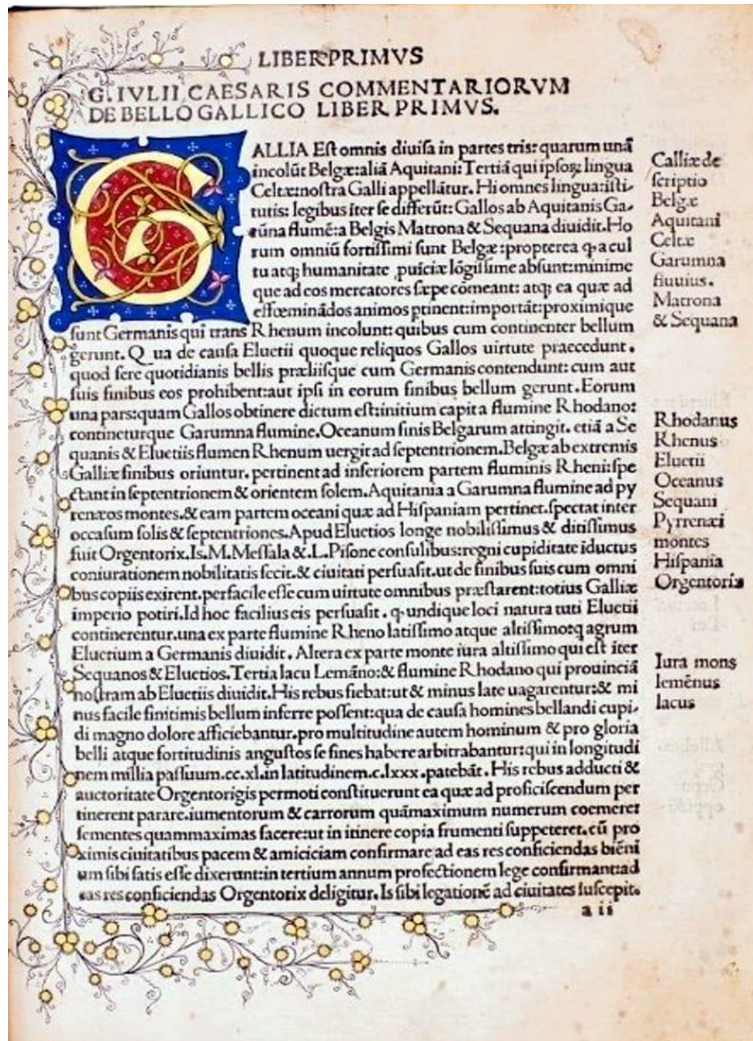 LIBER PRIMVS
G. IVLII CAESARIS COMMENTARIORVM
DE BELLO GALLICO LIBER PRIMVS.
GALLIA Est omnis diuisa in partes tris: quarum unā
incolūt Belgæ: aliā Aquitani: Tertiā qui ipsoꝝ lingua
Celtæ: nostra Galli appellātur. Hi omnes lingua: isti-
tutis: legibus iter se differūt: Gallos ab Aquitanis Ga-
rūna flumē: a Belgis Matrona & Sequana diuidit. Ho
rum omniū fortissimi sunt Belgæ: propterea ꝙ a cul
tu atqꝫ humanitate ꝓuīciæ lōgissime absunt: minime
que ad eos mercatores sæpe cōmeant: atqꝫ ea quæ ad
effœminādos animos ꝑtinent: importāt: proximique
sunt Germanis qui trans Rhenum incolunt: quibus cum continenter bellum
gerunt. Qua de causa Eluetii quoque reliquos Gallos uirtute praecedunt.
quod fere quotidianis bellis præliisque cum Germanis contendunt: cum aut
suis finibus eos prohibent: aut ipsi in eorum finibus bellum gerunt. Eorum
una pars: quam Gallos obtinere dictum est: initium capit a flumine Rhodano:
contineturque Garumna flumine. Oceanum finis Belgarum attingit. etiā a Se
quanis & Eluetiis flumen Rhenum uergit ad septentrionem. Belgæ ab extremis
Galliæ finibus oriuntur. pertinent ad inferiorem partem fluminis Rheni: spe
ctant in septentrionem & orientem solem. Aquitania a Garumna flumine ad py
renæos montes. & eam partem oceani quæ ad Hispaniam pertinet. spectat inter
occasum solis & septentriones. Apud Eluetios longe nobilissimus & ditissimus
fuit Orgentorix. Is. M. Messala & L. Pisone consulibus: regni cupiditate iductus
coniurationem nobilitatis fecit. & ciuitati persuasit. ut de finibus suis cum omni
bus copiis exirent. perfacile esse cum uirtute omnibus præstarent: totius Galliæ
imperio potiri. Id hoc facilius eis persuasit. ꝙ undique loci natura tuti Eluetii
continerentur. una ex parte flumine Rheno latissimo atque altissimo: q agrum
Eluetium a Germanis diuidit. Altera ex parte monte iura altissimo qui est iter
Sequanos & Eluetios. Tertia lacu Lemāno: & flumine Rhodano qui prouinciā
nostram ab Eluetiis diuidit. His rebus fiebat: ut & minus late uagarentur: & mi
nus facile finitimis bellum inferre possent: qua de causa homines bellandi cupi-
di magno dolore afficiebantur. pro multitudine autem hominum & pro gloria
belli atque fortitudinis angustos se fines habere arbitrabantur: qui in longitudi
nem millia passuum. cc. xl. in latitudinem. c. lxxx. patebāt. His rebus adducti &
auctoritate Orgentorigis permoti constituerunt ea quæ ad proficiscendum per
tinerent parare. iumentorum & carrorum quāmaximum numerum coemere:
sementes quammaximas facere: ut in itinere copia frumenti suppeteret. cū pro
ximis ciuitatibus pacem & amiciciam confirmare ad eas res conficiendas biēni
um sibi satis esse dixerunt: in tertium annum profectionem lege confirmant: ad
eas res conficiendas Orgentorix deligitur. Is sibi legationē ad ciuitates suscepit.
a ii
Galliæ de
scriptio
Belgæ
Aquitani
Celtæ
Garumna
fluuius.
Matrona
& Sequana
Rhodanus
Rhenus
Eluetii
Oceanus
Sequani
Pyrrenæi
montes
Hispania
Orgentorix
Iura mons
lemēnus
lacus